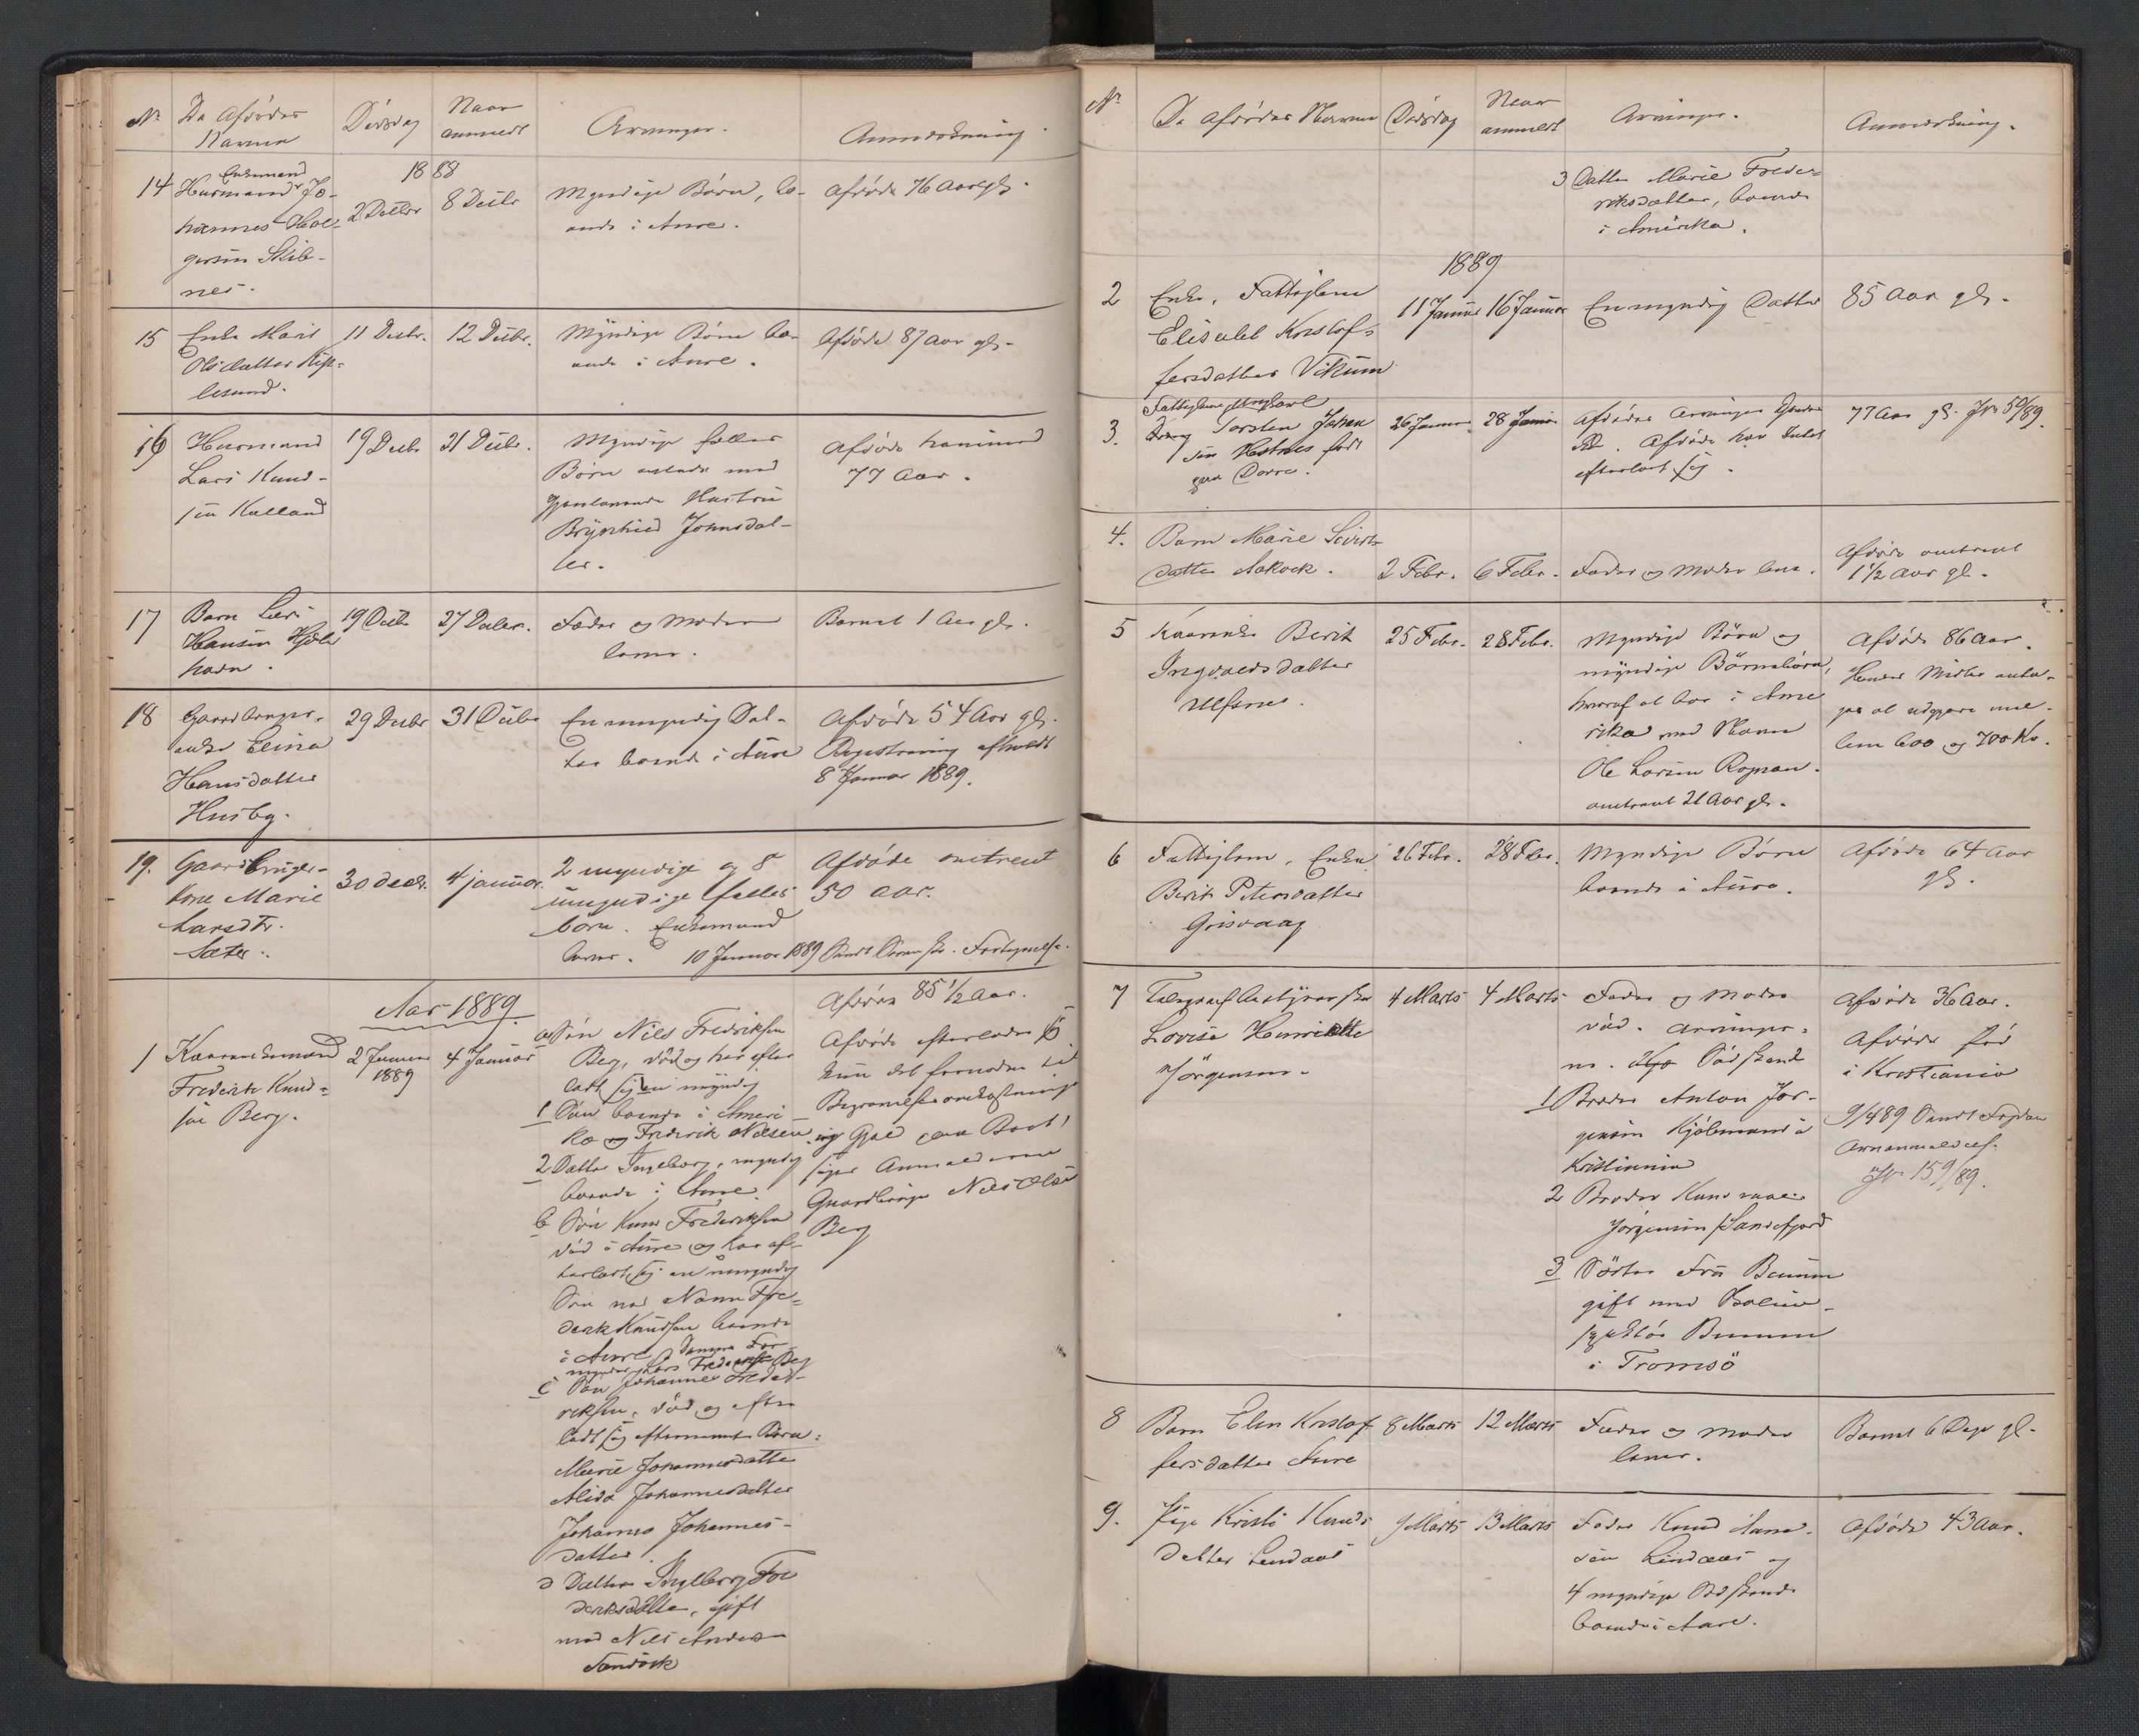 No
De Afdødes
Navne
Dødsdag
Naar
anmeldt
Arvinger.
Anmærkning.
1888
14
Enkemand
Husmand Jo-
hannes Hol-
gersen Skib-
nes.
2 Decbr
8 Decbr
Myndige Børn, bo-
ende i Aure.
Afdøde 76 Aar gl.
15
Enke Marit
Olsdatter Kip-
lesund.
11 Decbr.
12 Decbr.
Myndige Børn bo-
ende i Aure.
Afdøde 87 Aar gl.
16
Husmand
Lars Knud-
sen Kalland
19 Decbr
21 Decbr.
Myndige fælles
Børn avlede med
gjenlevende Hustru
Brynhild Johnsdat-
ter.
Afdøde henimod
77 Aar.
17
Barn Lars
Hansen
havn.
19 Decbr
27 Decbr.
Fader og Moder
lever.
Barnet 1 Aar gl.
18
Gaardbruger-
enke Elina
Hansdatter
Husby.
29 Decbr
31 Decbr
En myndig Dat-
ter boende i Aure
Afdøde 54 Aar gl.
Registrering afholdt
8 Januar 1889.
19.
Gaardbruger-
kone Marie
Larsdtr.
Sæter.
30 decbr.
4 januar.
2 myndige og 8
umyndige fælles
børn. Enkemand
lever.
Afdøde omtrent
50 aar.
10 Januar 1889 Sendt Sorensk. Fortegnelse.
Aar 1889.
1
Kaarenkemand
Frederik Knud-
sen Berg.
2 Januar
1889
4 Januar
a Søn Nils Fredriksen
Berg, død og har efter
ladt sig en myndig
1 Søn boende i Ameri
ka Frederik Nilsen
2 Datter Ingeborg, myndig
boende i Aure
b Søn Knud Frederiksen
død i Aure og har ef-
terladt sig en umyndig
Søn ved Navn Fre-
derik Knudsen boende
i Aure, Dennes For-
mynder Lars Frederiksen Berg
c Søn Johannes Frede-
riksen, død og efter
ladt sig efternævnte Børn:
Marie Johannesdatter
Alida Johannesdatter
Johanna Johannes-
datter.
d Datter Ingeborg Fre
deriksdatter, gift
med Nils Anders
Sandvik
Afdøde 85 1/2 Aar.
Afdøde efterlader sig
kun det fornødne til
Begravelsesomkostninger
og Gjæld paa Boet!
siger Anmelderen
Gaardbruger Nils Olsen
Berg
No
De Afdødes Navne
Dødsdag
Naar
anmeldt
Arvinger.
Anmærkning.
3 Datter Marie Frede-
riksdatter, boende
i Amerika.
1889
2
Enke, Fattiglem
Elisabet Kristof-
fersdatter Vikum
11 Januar
16 Januar
En myndig Datter
85 Aar gl.
3.
Fattiglem Ungkarl
Torsten Johan
sen Hestnes født
paa Dovre.
26 Januar
28 Januar
Afdødes Arvinger
Afdøde har Intet
efterladt sig.
77 Aar gl. Jr. 50/89.
4.
Barn Marie Sivert
datter Aakvik.
2 Febr.
6 Febr.
Fader og Moder lever.
Afdøde omtrent
1 1/2 Aar gl.
5
Kaarenke Berit
Ingvaldsdatter
Ulfsnes.
25 Febr.
28 Febr.
Myndige Børn og
myndige Børnebørn,
hvoraf et bor i Ame
rika ved Navn
Ole Larsen
omtrent 21 Aar gl.
Afdøde 86 Aar.
Hendes Midler anta-
ges at udgjøre mel-
lem 600 og 700 Kr.
6
Fattiglem, Enke
Berit Petersdatter
Grisvaag
26 Febr.
28 Febr.
Myndige Børn
boende i Aure.
Afdøde 64 Aar
gl.
7
Telegrafbestyrerske
Lovise Henriette
Jörgensen.
4 Marts
4 Marts
Fader og Moder
død. Arvinger-
ne. Sødskende
1 Broder Anton Jör-
gensen Kjöbmand i
Kristiania
2 Broder
Jørgensen Sandefjord
3 Søster Fru
gift med
i Tromsö
Afdøde 36 Aar.
Afdøde født
i Kristiania
9/4 89 Sendt Fogden
Jr. 159/89.
8
Barn Elen Kristof
fersdatter Aure
8 Marts
12 Marts
Fader og Moder
lever.
Barnet 6 Dage gl.
9.
Pige Kristi Knuds
datter Lindaas
9 Marts
13 Marts
Fader Knud
sen Lindaas og
4 myndige Sødskende
boende i Aure.
Afdøde 43 Aar.